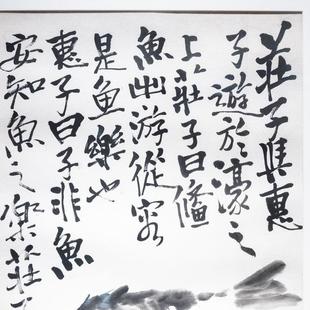 莊子與惠
子遊於濠之
上莊子曰鯈
魚出游從容
是鱼樂也
惠子曰子非魚
安知魚之樂莊